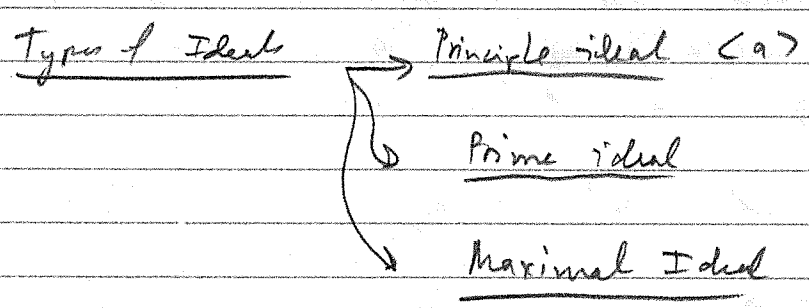 Types of Ideals Principle ideal <a>
Prime ideal
Maximal Ideal